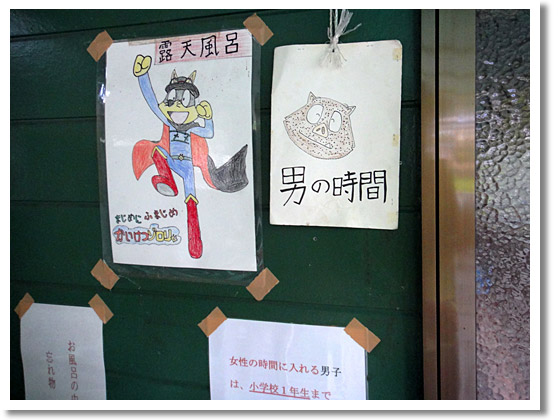 露天風呂
まじめにふまじめ
かいけつゾロリ
男の時間
お風呂の
忘れ物
女性の時間に入れる男子
は、小学校1年生まで